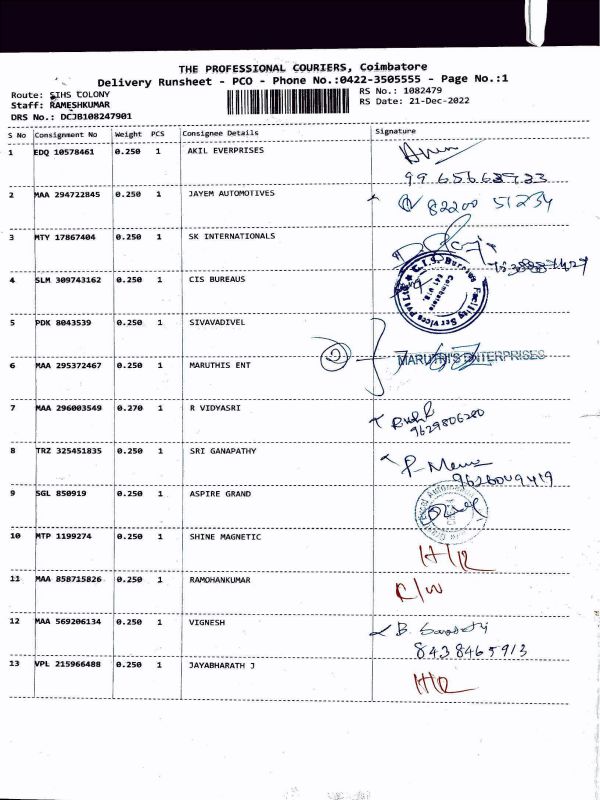 THE PROFESSIONAL COURIERS, Coimbatore
Delivery Runsheet - PCO - Phone No.:0422-3505555 - Page No.:1
Route: SIHS COLONY
Staff: RAMESHKUMAR
DRS No.: DCJB108247901
RS No.: 1082479
RS Date: 21-Dec-2022
S No Consignment No Weight PCS Consignee Details Signature
1 EDQ 10578461 0.250 1 AKIL EVERPRISES
2 MAA 294722845 0.250 1 JAYEM AUTOMOTIVES 82200 51234
3 MTY 17867404 0.250 1 SK INTERNATIONALS
4 SLM 309743162 0.250 1 CIS BUREAUS
C.I.S. Bureaus Facility Services Pvt Ltd
Coimbatore
641 018.
5 PDK 8043539 0.250 1 SIVAVADIVEL
6 MAA 295372467 0.250 1 MARUTHIS ENT MARUTHI'S ENTERPRISES
7 MAA 296003549 0.270 1 R VIDYASRI
9629806280
8 TRZ 325451835 0.250 1 SRI GANAPATHY
9626049419
9 SGL 850919 0.250 1 ASPIRE GRAND
10 MTP 1199274 0.250 1 SHINE MAGNETIC
11 MAA 858715826 0.250 1 RAMOHANKUMAR
12 MAA 569206134 0.250 1 VIGNESH B.
8438465913
13 VPL 215966488 0.250 1 JAYABHARATH J